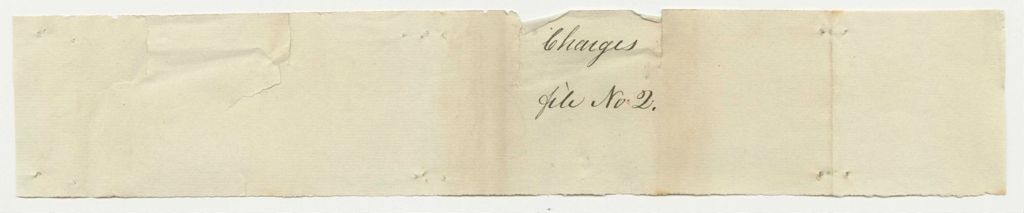 Charges
file No 2.